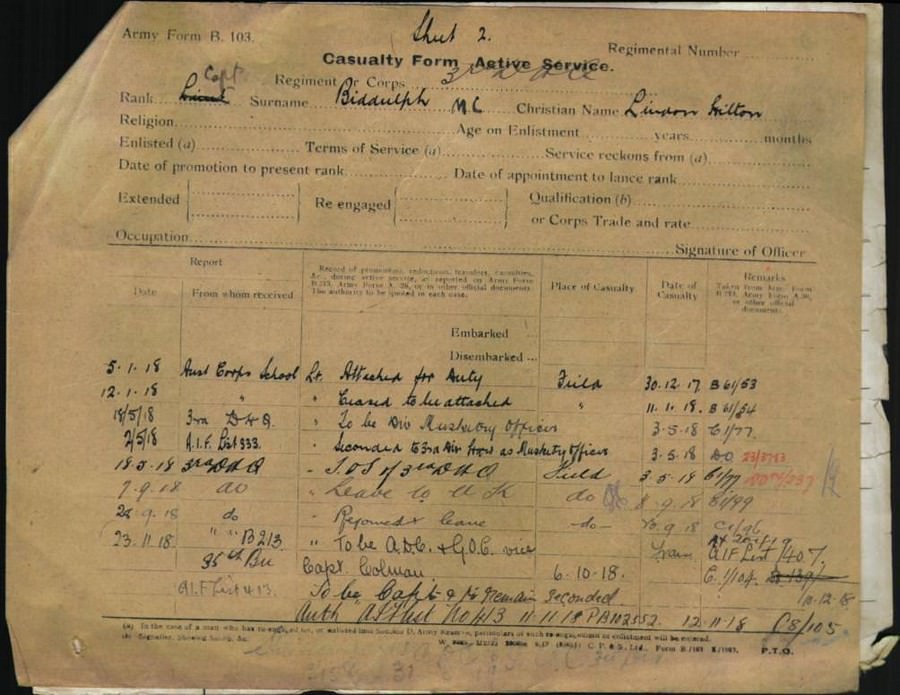 Sheet 2.
Army Form B. 103.
Regimental Number
Casualty Form Active Service.
Regiment or Corps
Capt
Rank Lieut Surname Biddulph M C Christian Name Hilton
Religion Age on Enlistment years months
Enlisted (a) Terms of Service (a) Service reckons from (a)
Date of promotion to present rank Date of appointment to lance rank
Extended Re engaged Qualification (b)
or Corps Trade and rate
Occupation Signature of Officer
Report
Date From whom received
Record of promotions, reductions, transfers, casualties, &c., during active service, as reported on Army Form B.213, Army Form A. 36, or in other official documents. The authority to be quoted in each case.
Place of Casualty
Date of Casualty
Remarks
Taken from Army Form B.213, Army Form A.36, or other official documents.
Embarked
Disembarked
5.1.18 Aust Corps School Lt. Attached for Duty Field 30.12.17 B61/53
12.1.18 " " Ceased to be attached " 11.1.18. B61/54
18/5/18 3rd D H Q. " To be Div Musketry officer 3.5.18 C1/77.
2/5/18 A.I.F. List 333. " Seconded to 3rd Div as Musketry Officer 3.5.18 DO
18.5.18 3rd D H Q " T.O.S of 3rd D H Q Field 3.5.18 C1/77
7.9.18 do " Leave to U K do 8.9.18 C1/99
do " Rejoined leave -do-
23.11.18 " " B213 " To be A.D.C. G.O.C. vice AIF List/407.
35th Bn Capt. Colman 6.10.18. C.1/104.
10.12.18
A.I.F List 413. To be Capt & to remain seconded
Auth AIF List No 413 11.11.18 12.11.18 C8/105
(a) In the case of a man who has re-engaged for, or enlisted into Section D, Army Reserve, particulars of such re-engagement or enlistment will be entered.
P.T.O.